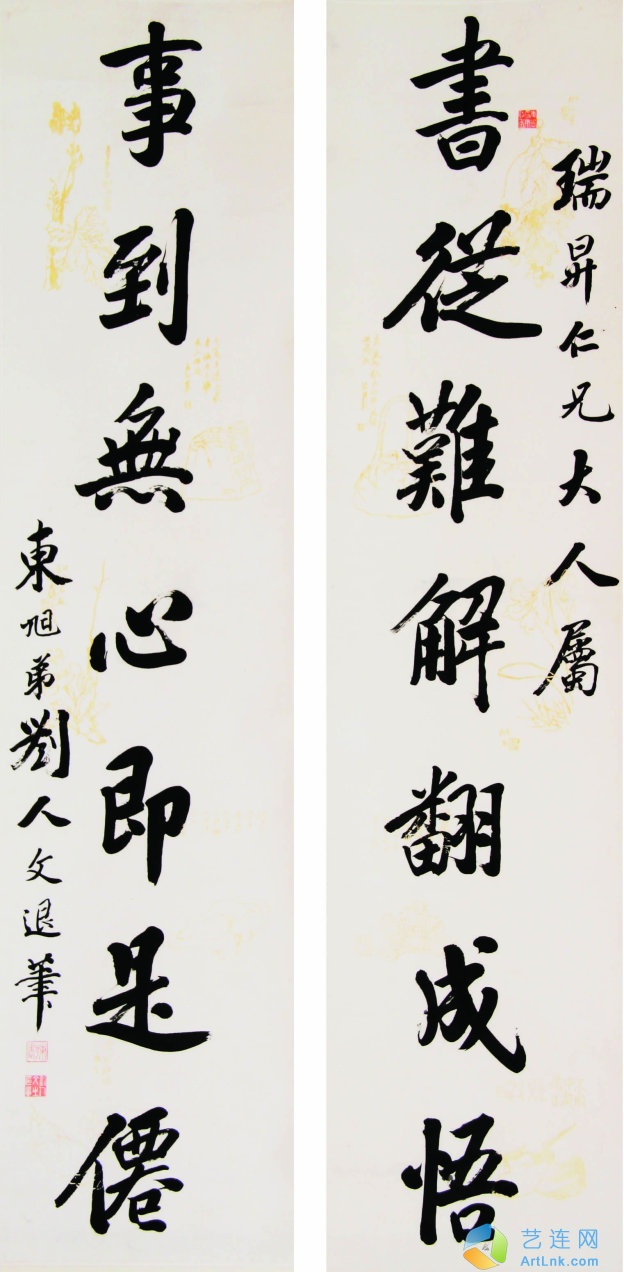 瑞昇仁兄大人屬
書從難解翻成悟
事到無心即是僊
東旭弟劉人文退筆
艺连网
ArtLnk.com